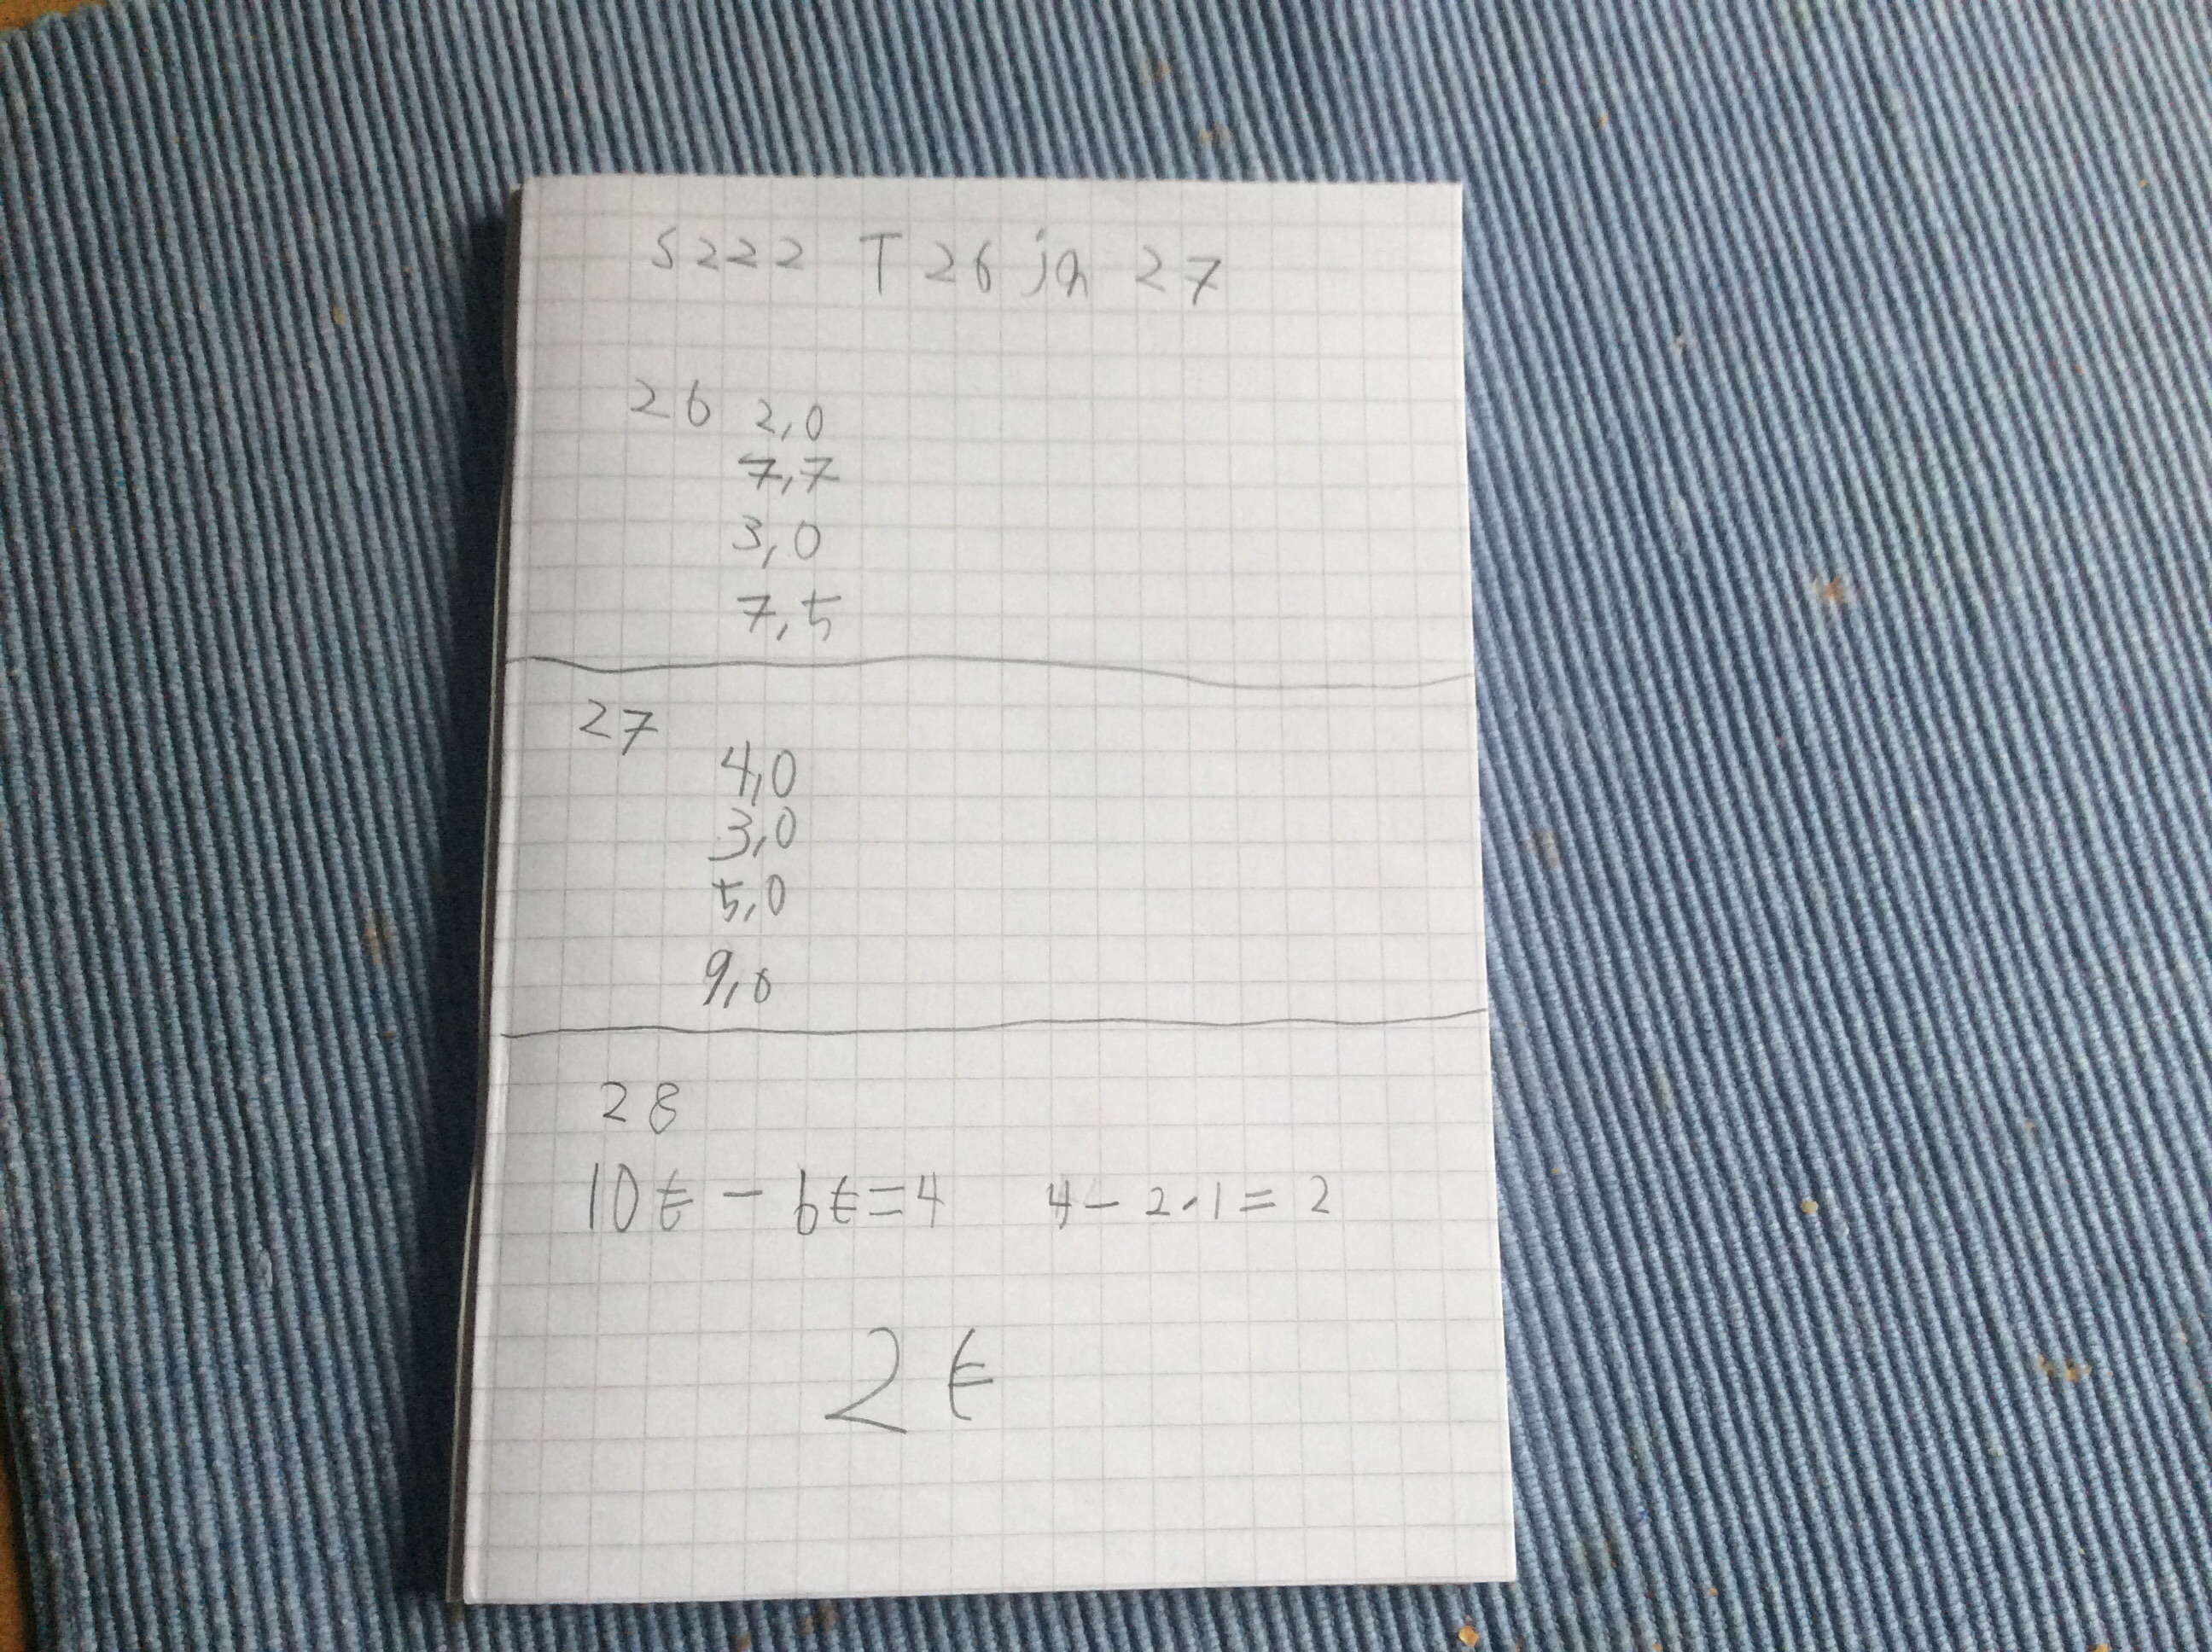 S222 T 26 ja 27
26 2,0
7,7
3,0
7,5
27
4,0
3,0
5,0
9,0
28
10€ - 6€=4 4-2·1=2
2€